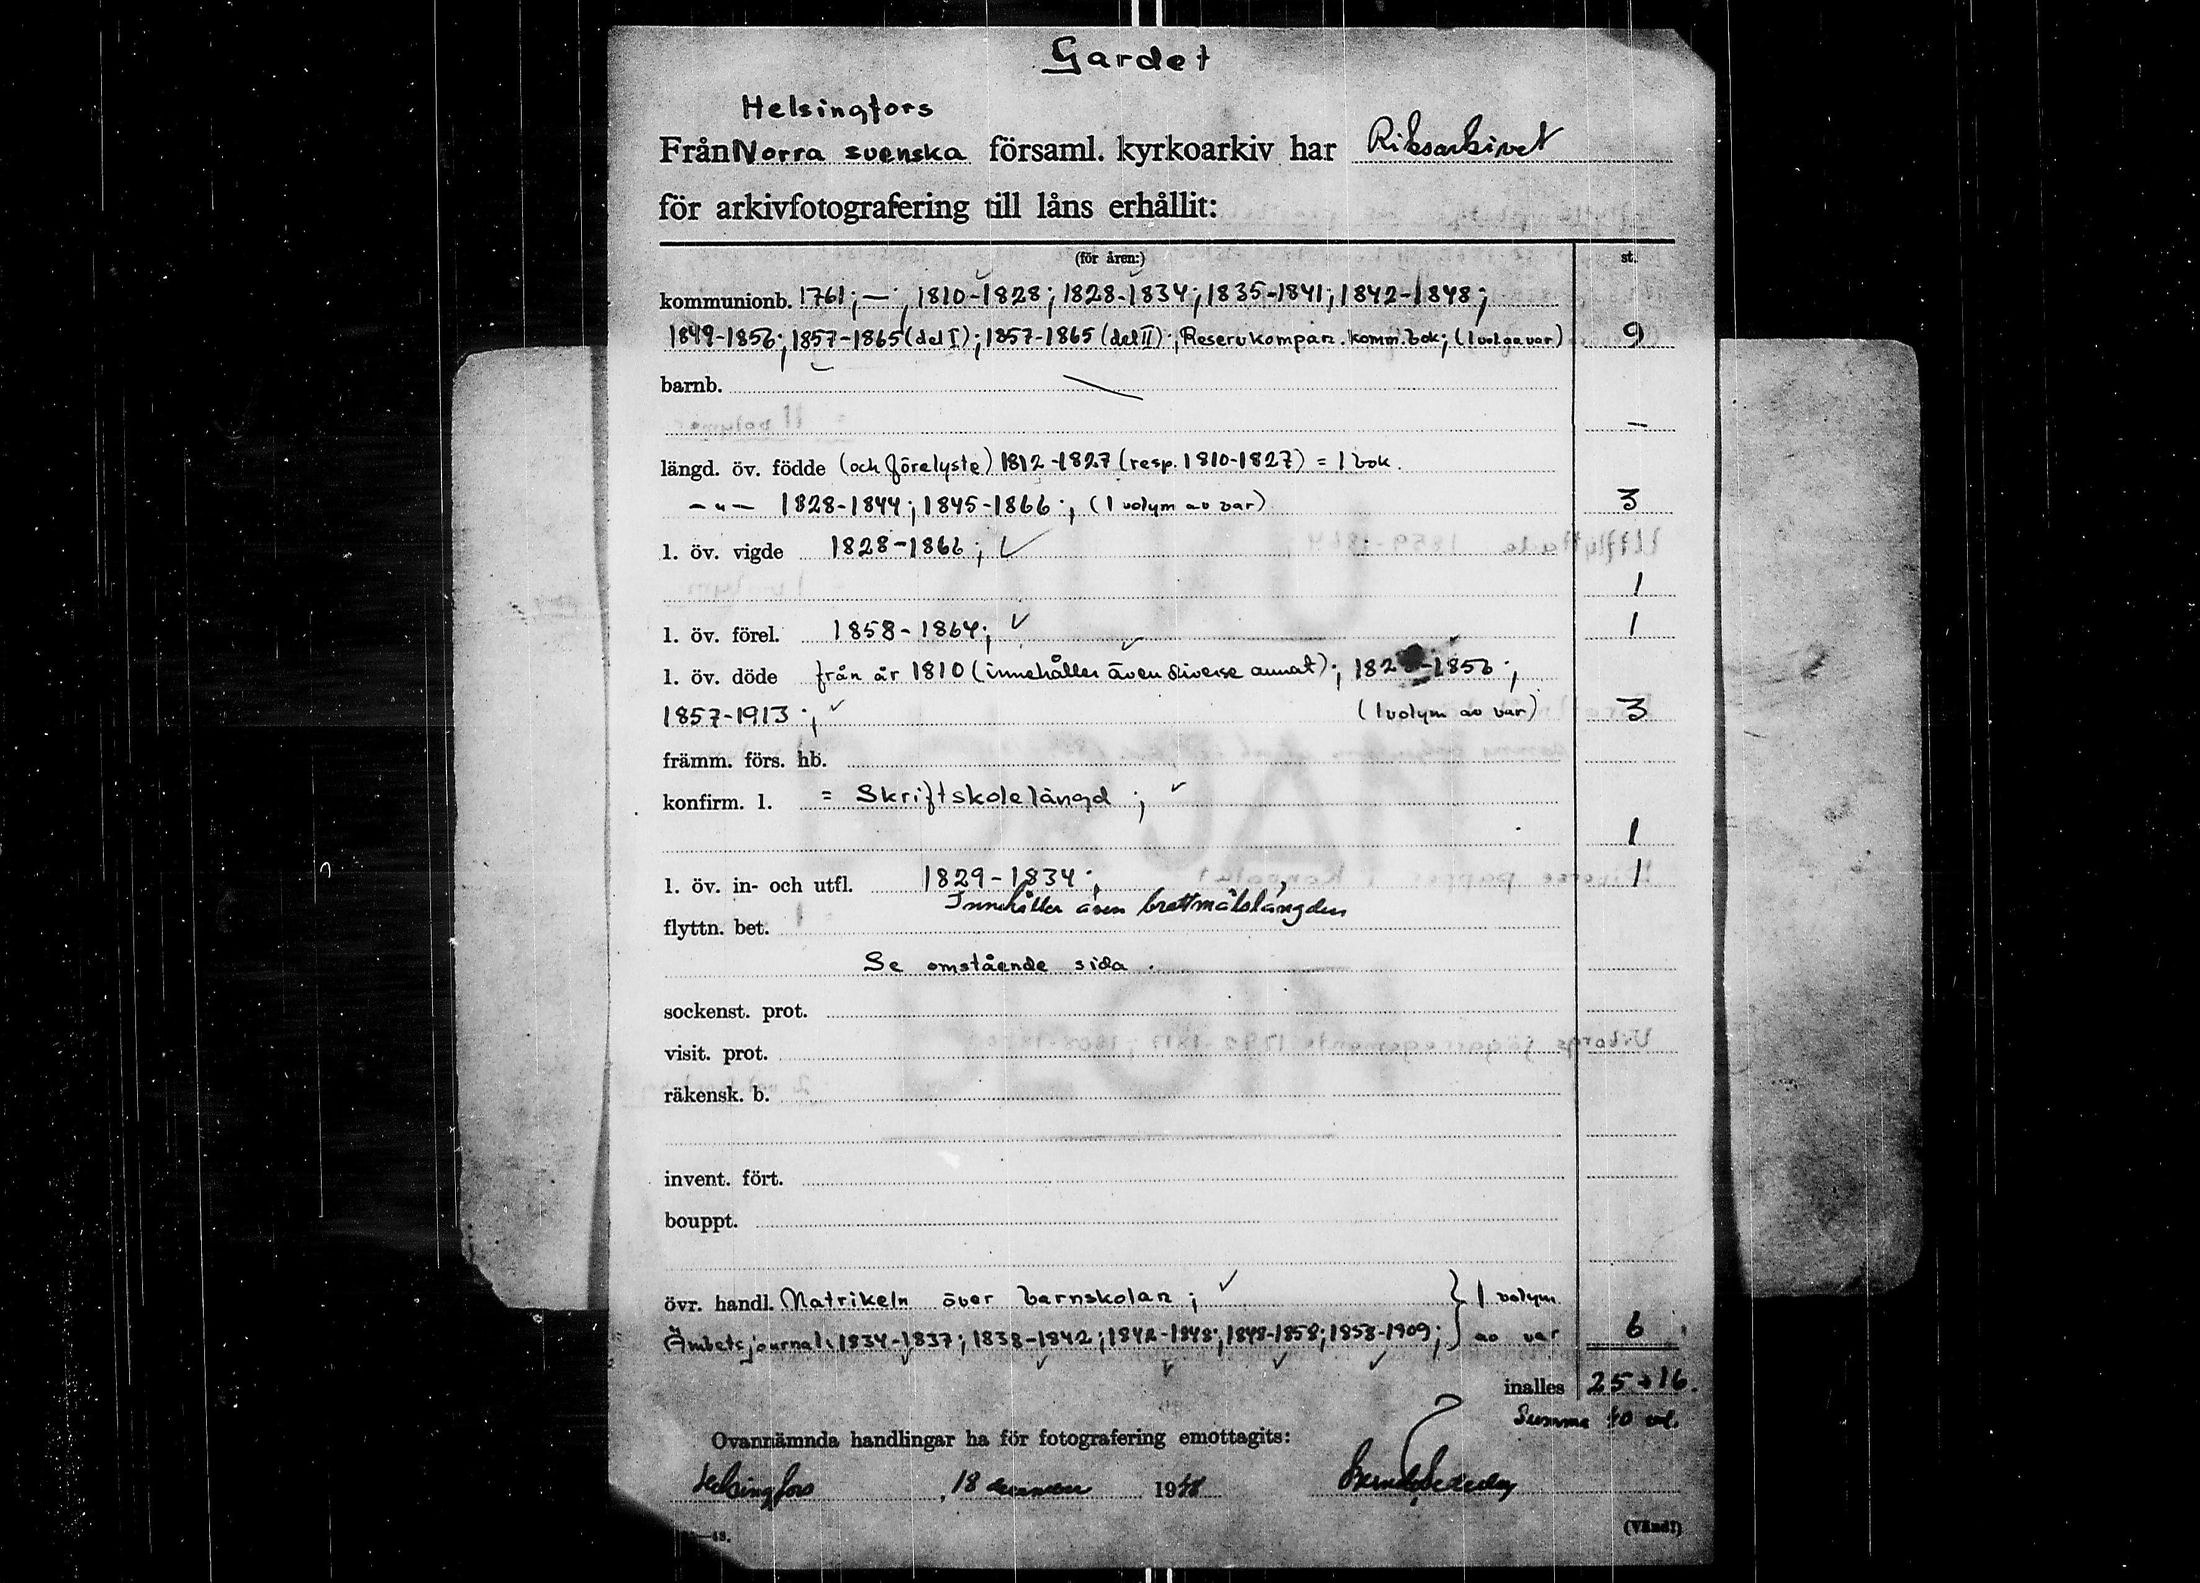 Gardet
Helsingfors
Från Norra svenska församl. kyrkoarkiv har Riksarkivet
för arkivfotografering till låns erhållit:
(för åren:) st.
kommunionb. 1761; —; 1810-1828; 1828-1834; 1835-1841; 1842-1848;
1849-1856; 1857-1865 (del I); 1857-1865 (del II); Reservkompan. komm.bok; (1 vol. av var) 9
barnb.
—
längd. öv. födde (och förelyste) 1812-1827 (resp. 1810-1827) = 1 bok.
— " — 1828-1844; 1845-1866; (1 volym av var) 3
l. öv. vigde 1828-1866;
1
l. öv. förel. 1858-1864; 1
l. öv. döde från år 1810 (innehåller även diverse annat); 182 -1856;
1857-1913; (1 volym av var) 3
främm. förs. hb.
konfirm. l. = Skriftskolelängd;
1
l. öv. in- och utfl. 1829-1834; 1
Innehåller även brottmålslängden
flyttn. bet.
Se omstående sida.
sockenst. prot.
visit. prot.
räkensk. b.
invent. fört.
bouppt.
övr. handl. Matrikeln över barnskolan; } 1 volym
Ämbetsjournal: 1834-1837; 1838-1842; 1842-1848; 1848-1858; 1858-1909; } av var 6
inalles 25+16.
Summa 40 vol.
Ovannämnda handlingar ha för fotografering emottagits:
Helsingfors, 18 1948
—48. (Vänd!)